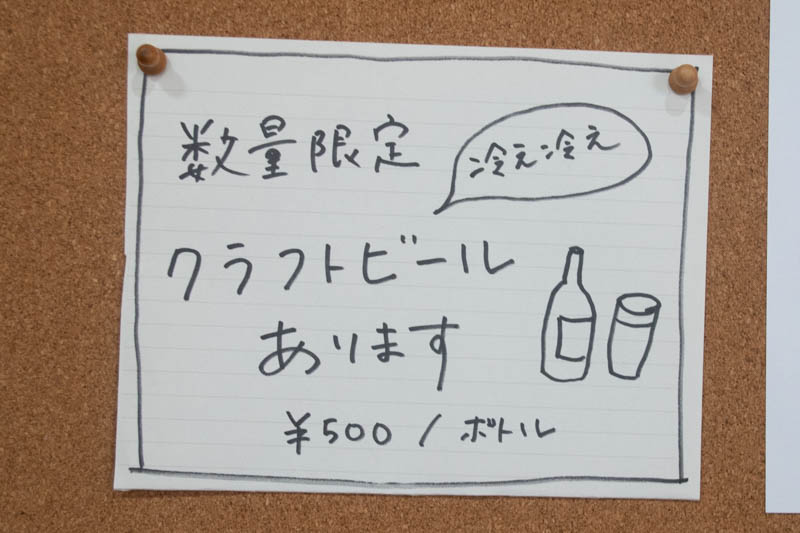 数量限定
冷え冷え
クラフトビール
あります
¥500/ボトル